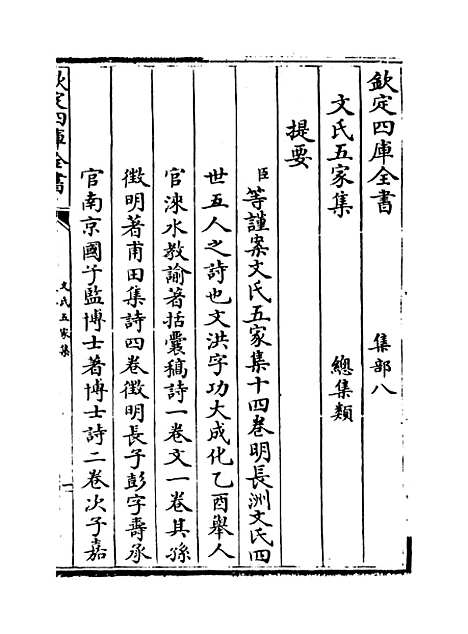 欽定四庫全書 集部八
文氏五家集 總集類
提要
臣等謹案文氏五家集十四卷明長洲文氏四
世五人之詩也文洪字功大成化乙酉舉人
官淶水教諭著括囊稿詩一卷文一卷其孫
徵明著甫田集詩四卷徵明長子彭字壽承
官南京國子監博士著博士詩二卷次子嘉
欽定四庫全書 文氏五家集 一